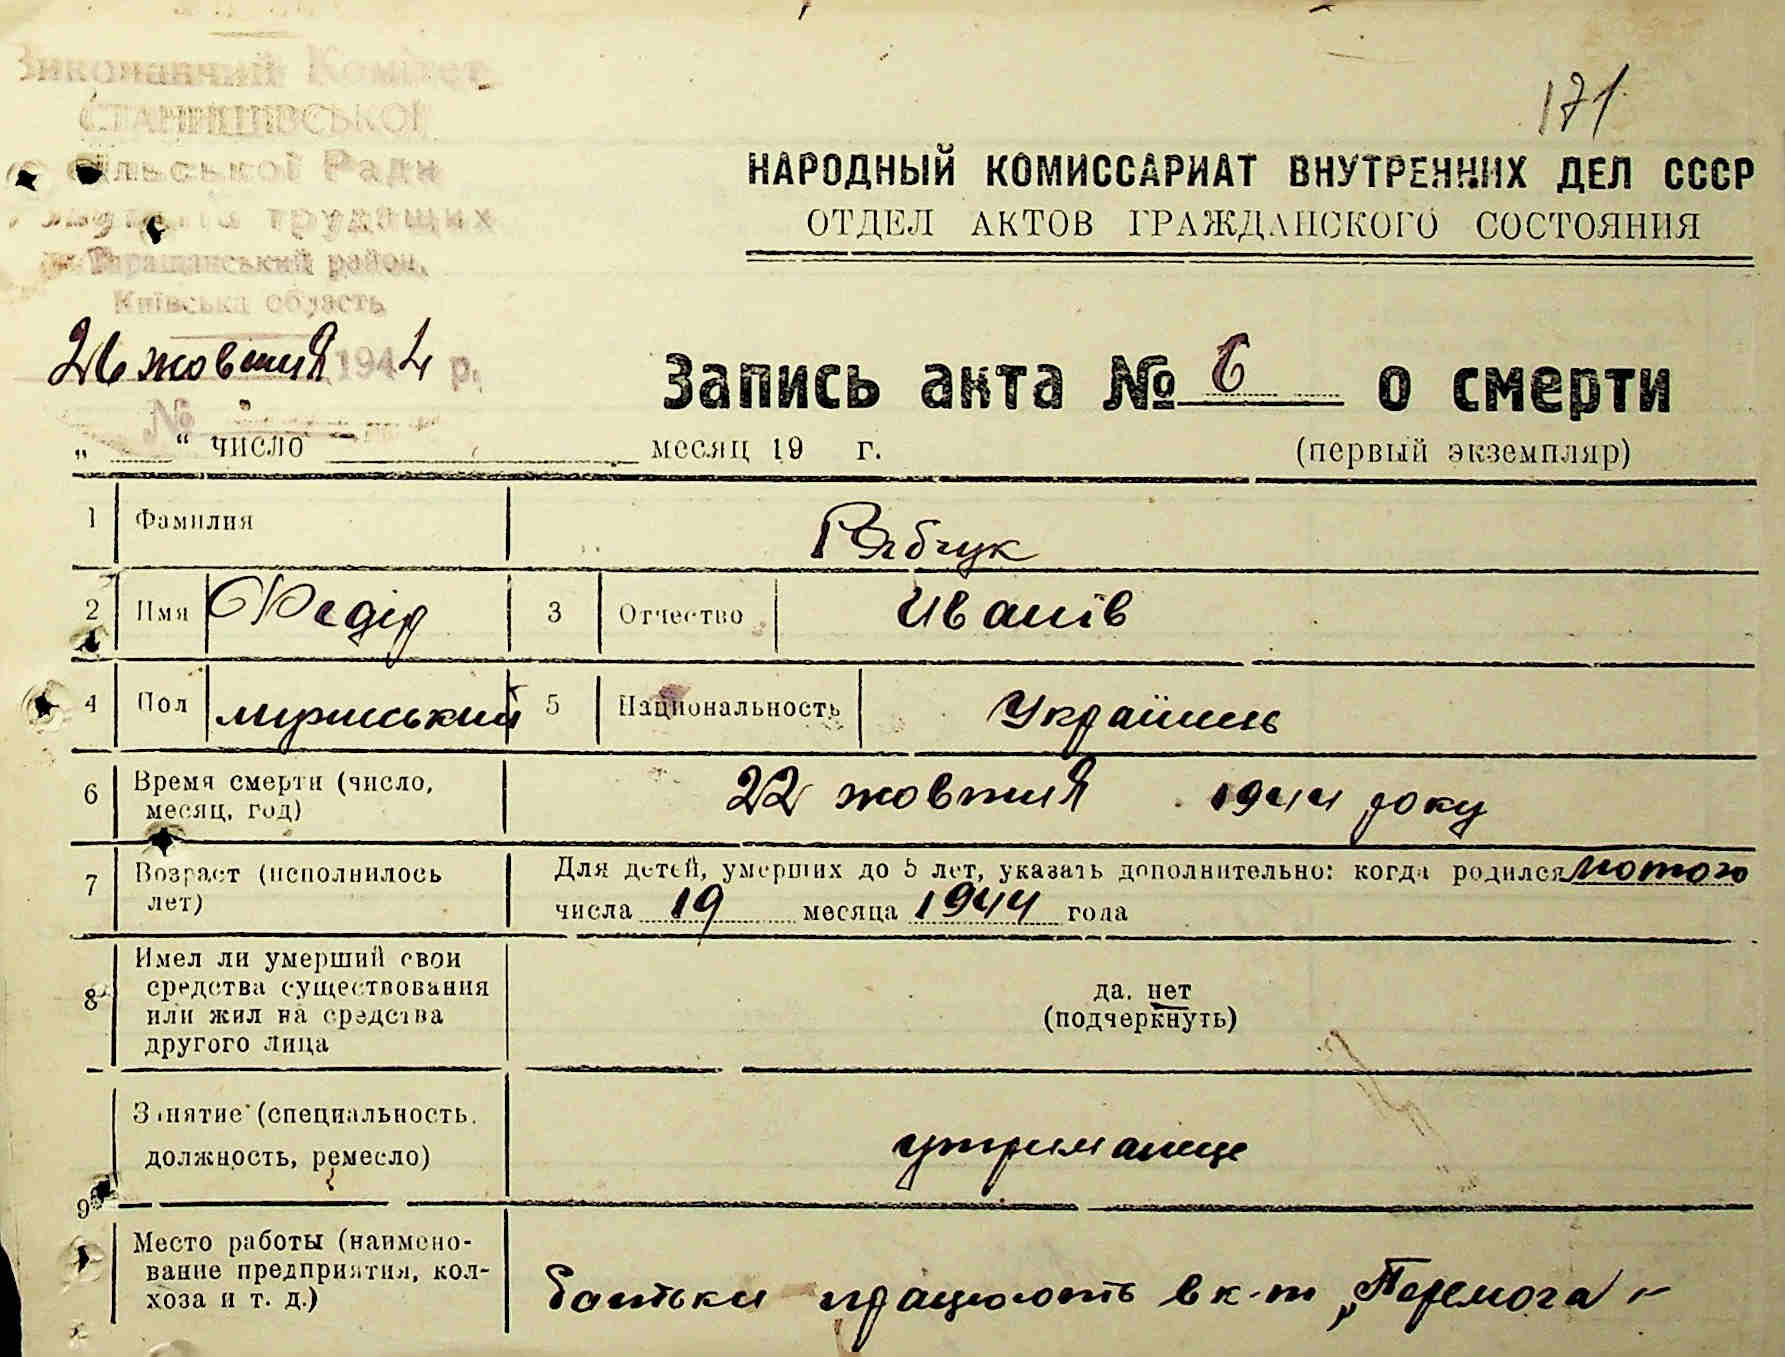 Виконавчий Комітет
СТАНИШІВСЬКОЇ
сільської Ради
трудящих
Таращанський район,
Київська область
26 жовтня 1944 р.
№
171
НАРОДНЫЙ КОМИССАРИАТ ВНУТРЕННИХ ДЕЛ СССР
ОТДЕЛ АКТОВ ГРАЖДАНСКОГО СОСТОЯНИЯ
Запись акта № 6 о смерти
„ “ число месяц 19 г. (первый экземпляр)
1 Фамилия Рябчук
2 Имя Федір 3 Отчество Иванів
4 Пол мужський 5 Национальность Українець
6 Время смерти (число, месяц, год) 22 жовтня 1944 року
7 Возраст (исполнилось лет) Для детей, умерших до 5 лет, указать дополнительно: когда родился лютого
числа 19 месяца 1944 года
8 Имел ли умерший свои
средства существования
или жил на средства
другого лица
да, нет
(подчеркнуть)
9 Занятие (специальность,
должность, ремесло)
утриманще
Место работы (наимено-
вание предприятия, кол-
хоза и т. д.)
батьки працюють в к-т „Перемога"